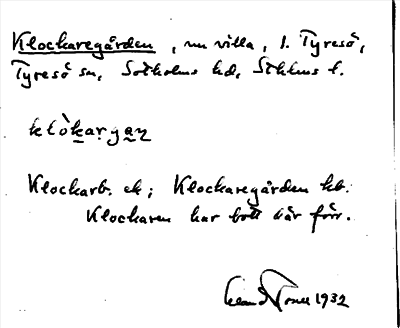 Klockaregården, nu villa, l. Tyresö,
Tyresö sn, Sotholms hd, Sthlms l.
klòkargan
Klockarb. ek; Klockaregården kb.
Klockaren har bott där förr.
1932